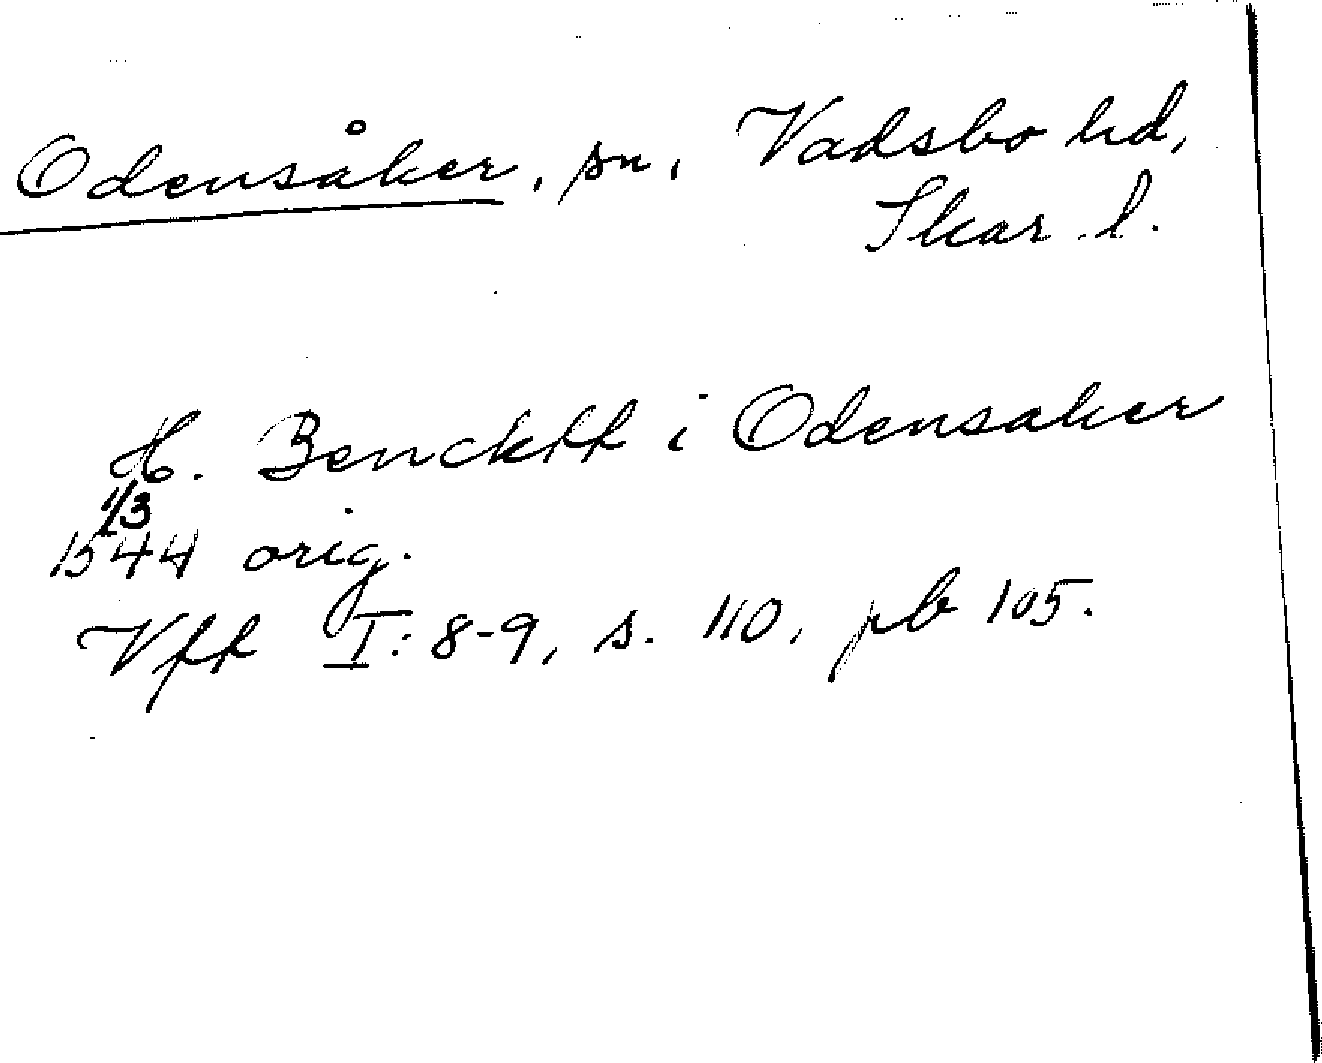 Odensåker, sn, Vadsbo hd,
Skar. l.
H. Bencktt i Odensaker
1/3
1544 orig.
Vff I: 8-9, s. 110, pb 105.